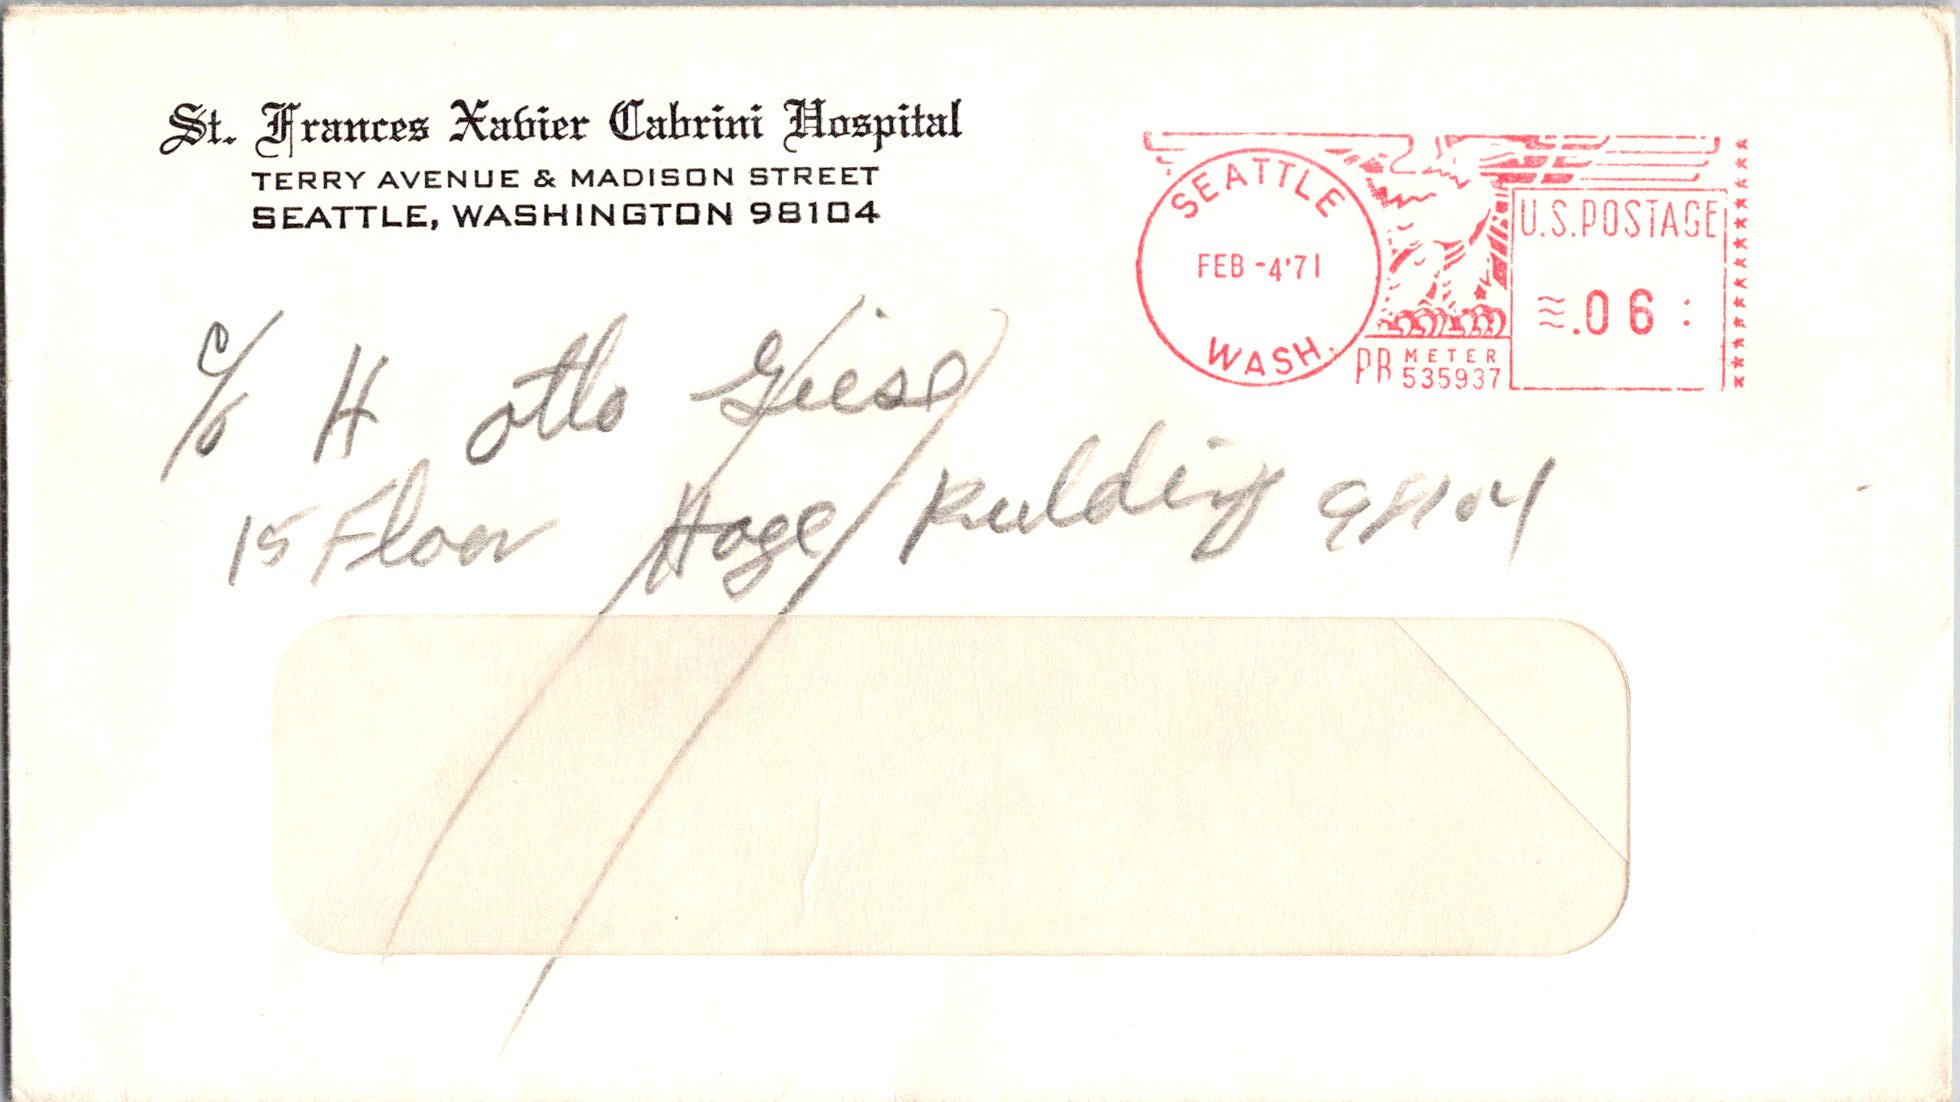 St. Frances Xavier Cabrini Hospital
TERRY AVENUE & MADISON STREET
SEATTLE, WASHINGTON 98104
SEATTLE
FEB -4'71
WASH.
PB METER
535937
U.S. POSTAGE
.06
c/o H Otto Giese
15 Floor Hoge Building 98104